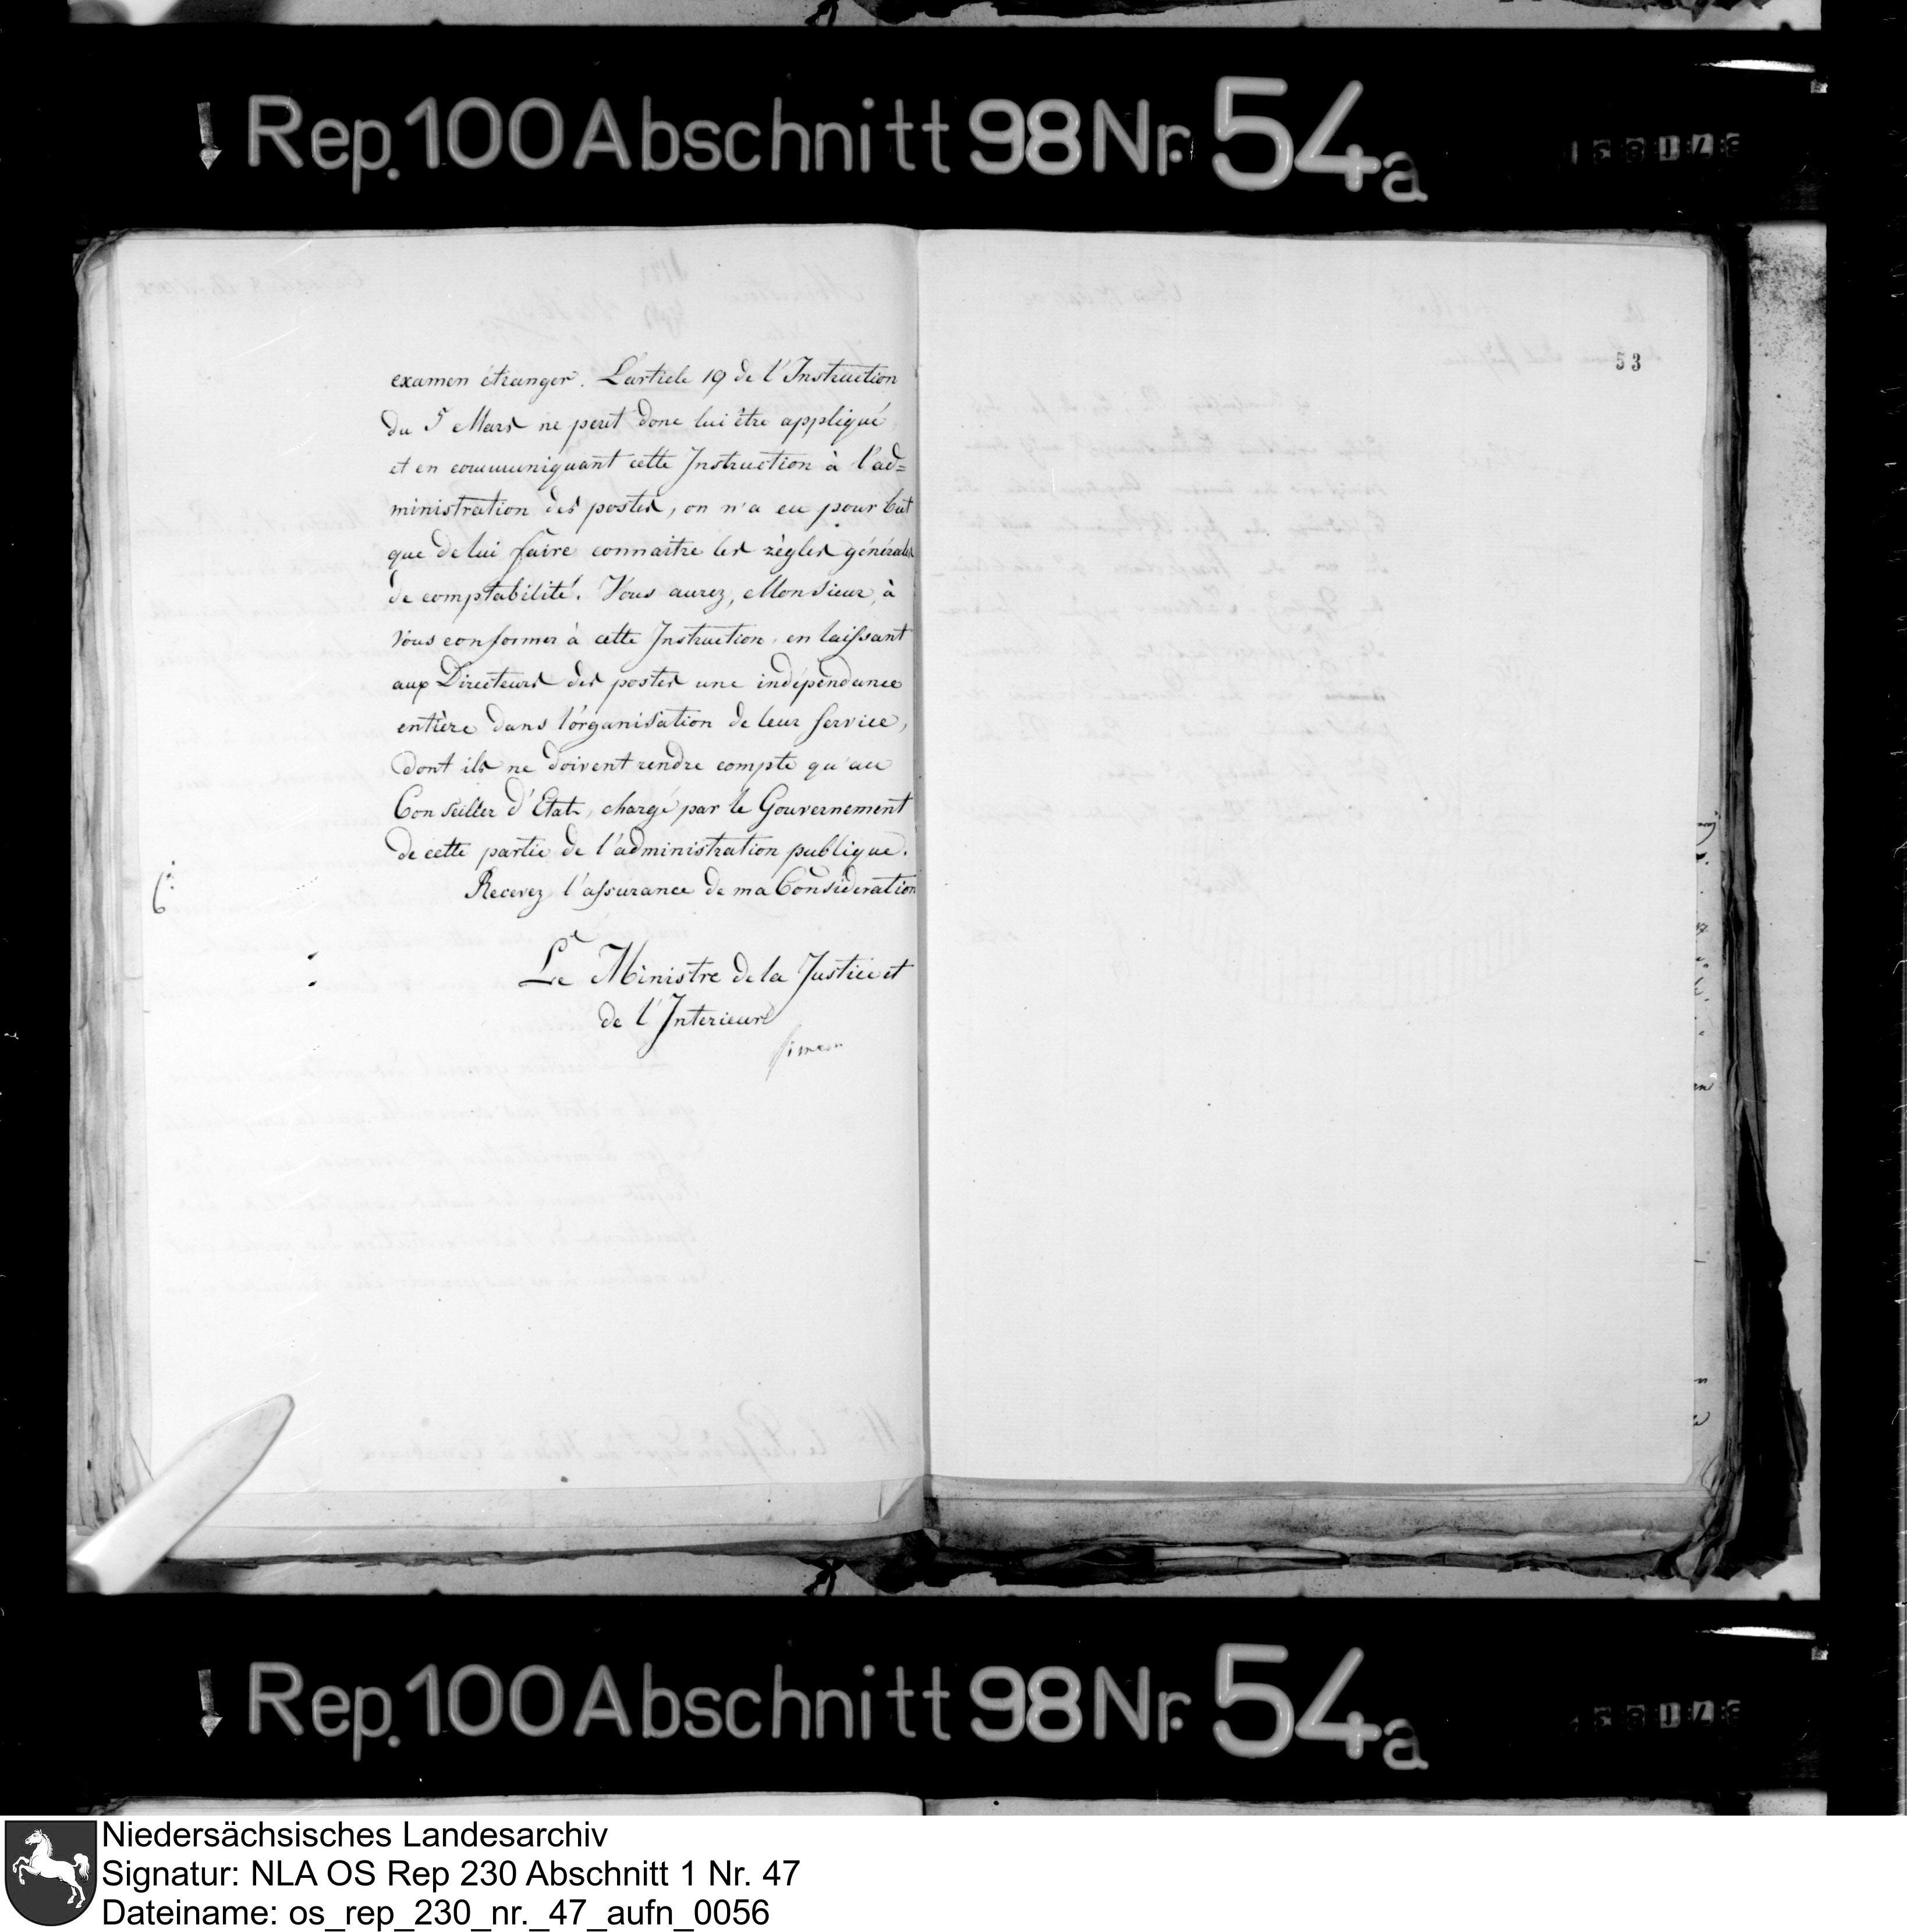 Rep. 100 Abschnitt 98 Nr. 54a
53
examen étranger. L'article 19 de l'Instruction
du 5 Mars ne peut donc lui être appliqué,
et en communiquant cette Instruction à l'ad=
ministration des postes, on n'a eu pour but
que de lui faire connaitre les règles générales
de comptabilité. Vous aurez, Monsieur, à
vous conformer à cette Instruction, en laissant
aux Directeurs des postes une indépendance
entière dans l'organisation de leur service,
dont ils ne doivent rendre compte qu'au
Conseiller d'Etat, chargé par le Gouvernement
de cette partie de l'administration publique.
Recevez l'assurance de ma Considération
Le Ministre de la Justice et
de l'Interieur
Simeon
Rep. 100 Abschnitt 98 Nr. 54a
Niedersächsisches Landesarchiv
Signatur: NLA OS Rep 230 Abschnitt 1 Nr. 47
Dateiname: os_rep_230_nr._47_aufn_0056